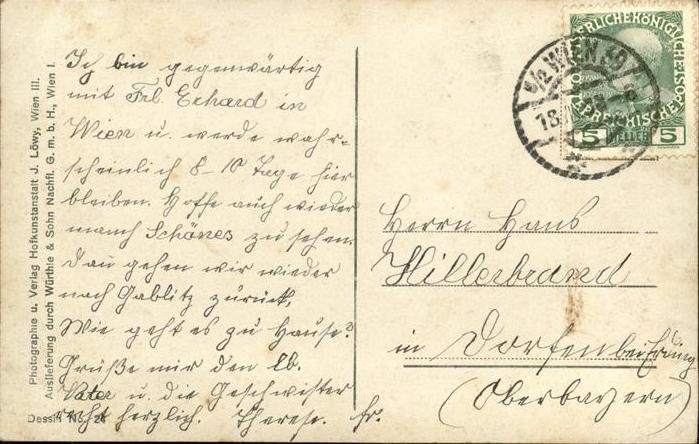 Ich bin gegenwärtig
mit Frl. Erhard in
Wien u. werde wahr-
scheinlich 8-10 Tage hier
bleiben. Hoffe auch wieder
manch Schönes zu sehen.
Dan gehen wir wieder
nach Gablitz zurück.
Wie geht es zu Hause?
Grüße mir den lb.
Vater u. die Geschwister
recht herzlich. Therese.
Herrn Hans
Hillerbrand
in Dorfen bei Erding
(Oberbayern)
Photographie u. Verlag Hofkunstanstalt J. Löwy, Wien III.
Auslieferung durch Würthle & Sohn Nachfl. G. m. b. H., Wien I.
Dessin No. 24
5 HELLER 5
WIEN